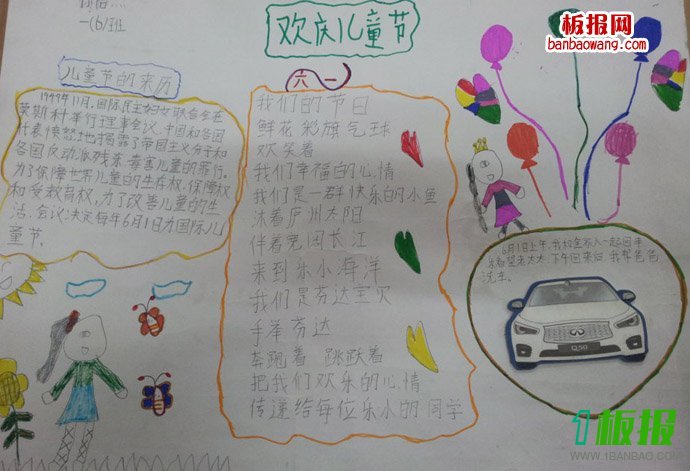 一(6)班
欢庆儿童节
板报网
banbaowang.com
儿童节的来历
1949年11月,国际民主妇女联合会在
莫斯科举行理事会议,中国和各国
代表愤怒地揭露了帝国主义分子和
各国反动派残杀、毒害儿童的罪行。
为了保障世界儿童的生存权、保障权
和受教育权,为了改善儿童的生
活,会议决定每年6月1日为国际儿
童节。
六一
我们的节日
鲜花 彩旗 气球
欢笑着
我们幸福的心情
我们是一群快乐的小鱼
沐着庐州太阳
伴着宽阔长江
来到乐小海洋
我们是芬达宝贝
手举芬达
奔跑着 跳跃着
把我们欢乐的心情
传递给每位乐小的同学
6月1日上午,我和全家人一起回丰
乐看望老太太,下午回来后,我帮爸爸
洗车。
Q50
1板报
WWW.1BANBAO.COM